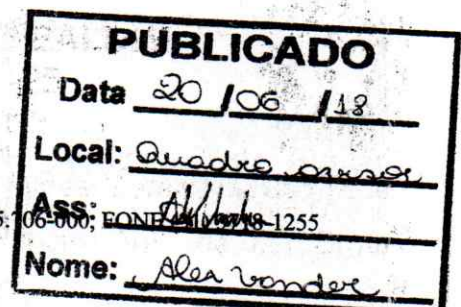 PUBLICADO
Data 20 / 06 / 18
Local: Quadro avisos
Ass:
06-000; FONE -1255
Nome: Alex vander